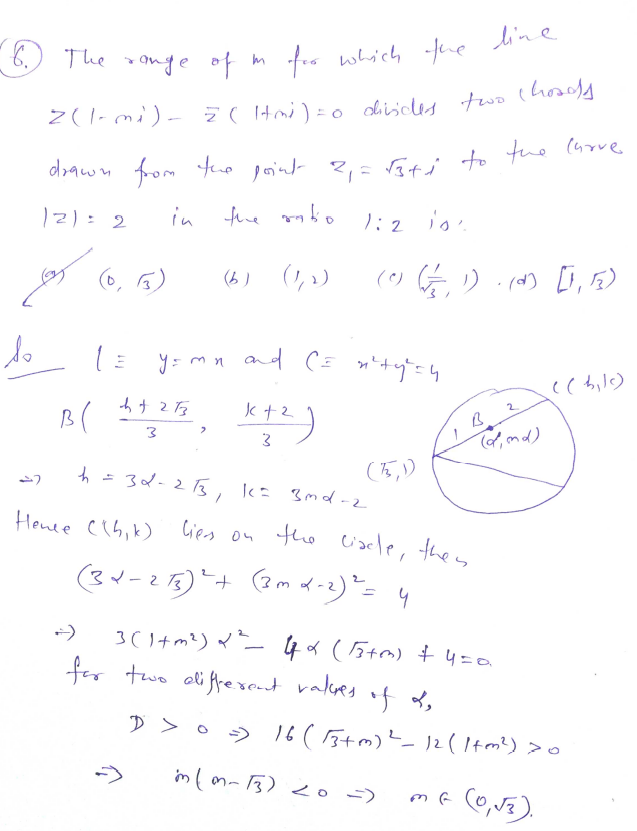 6. The range of m for which the line
z(1-mi) - z̄(1+mi)=0 divides two chords
drawn from the point z₁ = √3+i to the curve
|z|=2 in the ratio 1:2 is:
(a) (0, √3) (b) (1, 2) (c) (1/√3, 1) . (d) [1, √3)
So l ≡ y=mx and C ≡ x²+y²=4
B( (h+2√3)/3 , (k+2)/3 )
C(h,k)
2
B
1
(α, mα)
(√3,1)
⇒ h = 3α-2√3, k= 3mα-2
Hence C(h,k) lies on the circle, then
(3α-2√3)² + (3mα-2)² = 4
⇒ 3(1+m²)α² - 4α(√3+m) + 4=0.
for two different values of α,
D > 0 ⇒ 16(√3+m)² - 12(1+m²) >0
⇒ m(m-√3) <0 ⇒ m ∈ (0,√3).